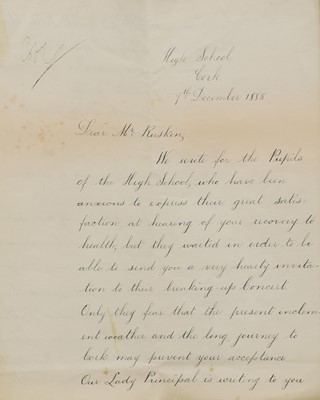 High School
Cork
7th December 1885
Dear Mr Ruskin,
We wrote for the Pupils
of the High School, who have been
anxious to express their great satis-
faction at hearing of your recovery to
health, but they waited in order to be
able to send you a very hearty invita-
tion to their breaking-up Concert
Only they fear that the present inclem-
ent weather and the long journey to
Cork may prevent your acceptance
Our Lady Principal is writing to you